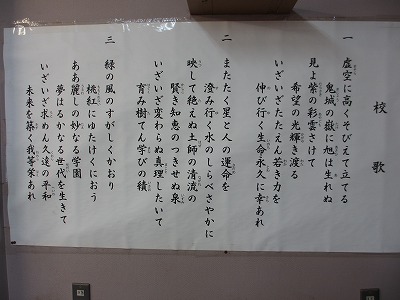 校歌
一
虚空に高くそびえて立てる
鬼城の嶽に旭は生れぬ
見よ紫の彩雲さけて
希望の光輝き渡る
いざいざたたえん若き力を
伸び行く生命永久に幸あれ
二
またたく星と人の運命を
澄み行く水のしらべさやかに
映して絶えぬ土師の清流の
賢き知恵のつきせぬ泉
いざいざ変わらぬ真理したいて
育み樹てん学びの績
三
緑の風のすがしくかおり
桃紅にゆたけくにおう
ああ麗しの妙なる学園
夢はるかなる世代を生きて
いざいざ求めん久遠の平和
未来を築く我等栄あれ